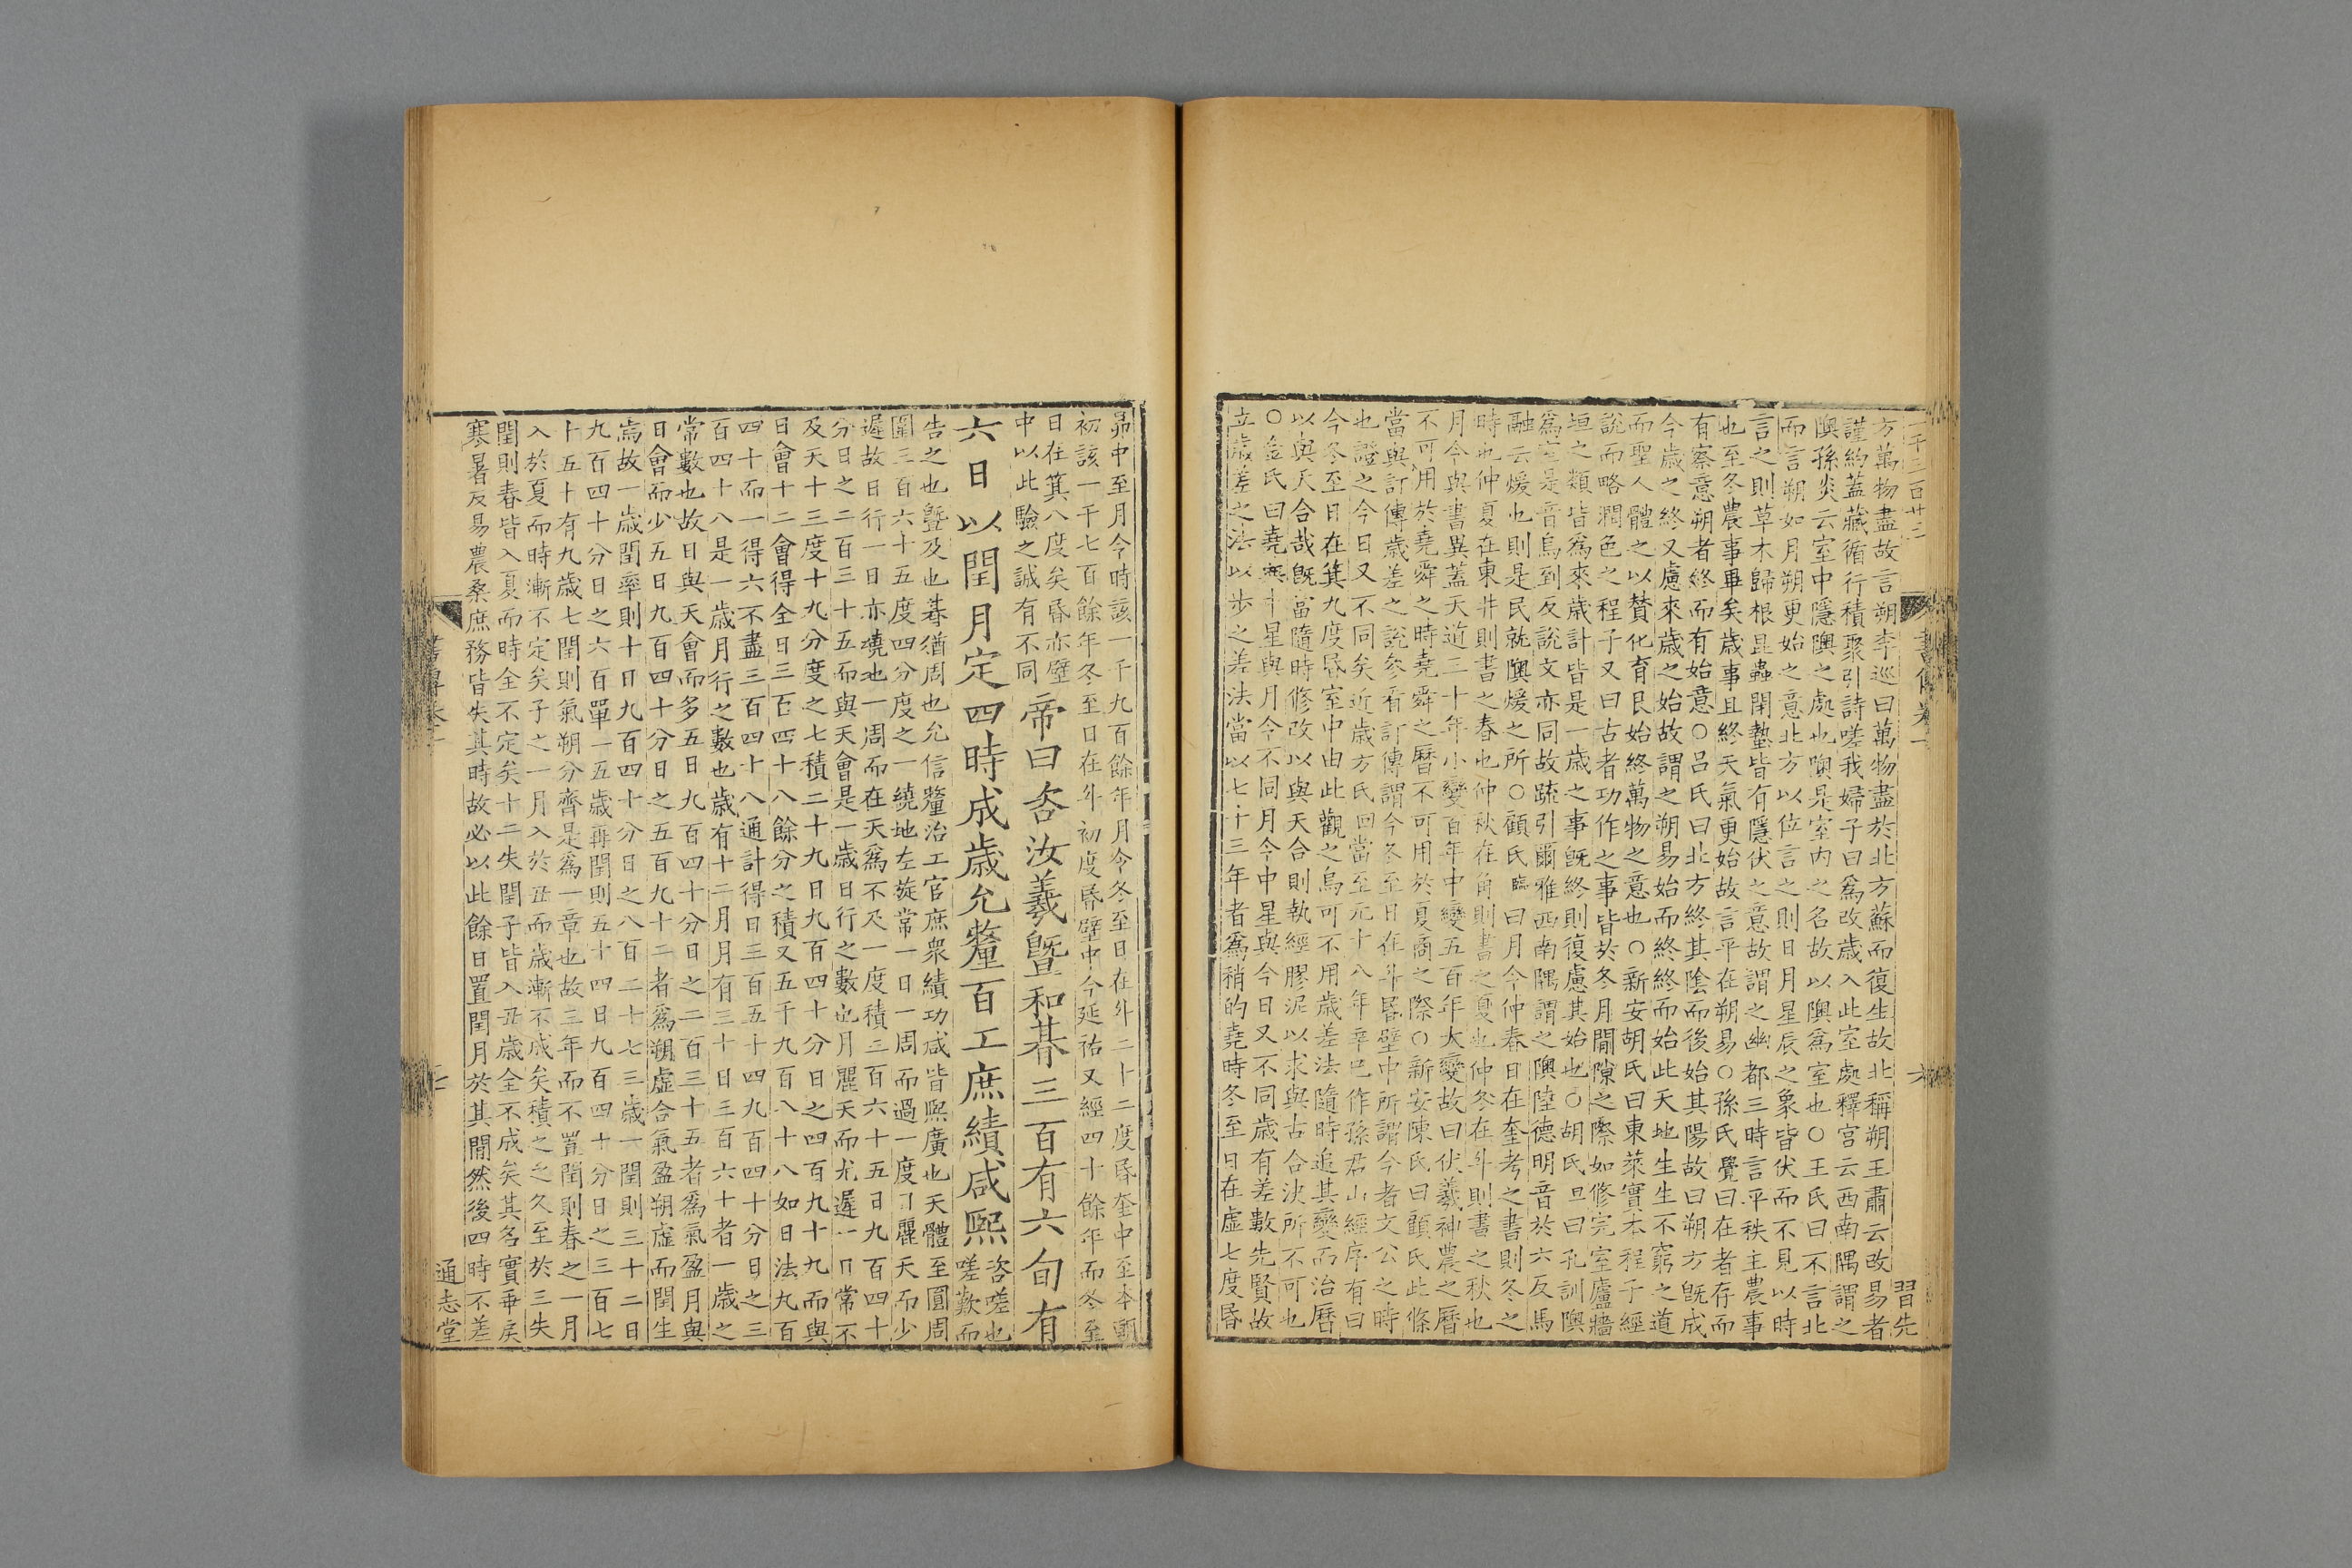 方萬物盡故言朔李巡曰萬物盡於北方蘇而復生故北稱朔王肅云改易者
謹約蓋藏循行積聚引詩嗟我婦子曰爲改歲入此室處釋宫云西南隅謂之
隩孫炎云室中隱隩之處也隩是室内之名故以隩爲室也○王氏曰不言北
而言朔如月朔更始之意北方以位言之則日月星辰之象皆伏而不見以時
言之則草木歸根昆蟲閉蟄皆有隱伏之意故謂之幽都三時言平秩主農事
也至冬農事畢矣歲事且終天氣更始故言平在朔易○孫氏覺曰在者存而
有察意朔者終而有始意○呂氏曰北方終其陰而後始其陽故曰朔方旣成
今歲之終又慮來歲之始故謂之朔易始而終終而始此天地生生不窮之道
而聖人體之以賛化育艮始終萬物之意也○新安胡氏曰東萊實本程子經
說而略潤色之程子又曰古者功作之事皆於冬月閒隙之際如修完室廬牆
垣之類皆爲來歲計皆是一歲之事旣終則復慮其始也○胡氏旦曰孔訓隩
爲室是音烏到反說文亦同故疏引爾雅西南隅謂之隩陸德明音於六反馬
融云煖也則是民就隩煖之所○顧氏臨曰月令仲春日在奎考之書則冬之
時也仲夏在東井則書之春也仲秋在角則書之夏也仲冬在斗則書之秋也
月令與書異蓋天道三十年小變百年中變五百年大變故曰伏羲神農之曆
不可用於堯舜之時堯舜之曆不可用於夏商之際○新安陳氏曰顧氏此條
當與訂傳歲差之說參看訂傳謂今冬至日在斗昏壁中所謂今者文公之時
也證之今日又不同矣近歲方氏回當至元十八年辛巳作孫君山經序有曰
今冬至日在箕九度昏室中由此觀之烏可不用歲差法隨時追其變而治曆
以與天合哉旣當隨時修改以與天合則執經膠泥以求與古合決所不可也
○金氏曰堯典中星與月令不同月令中星與今日又不同歲有差數先賢故
立歲差之法以步之差法當以七十三年者爲稍的堯時冬至日在虛七度昏
昴中至月令時該一千九百餘年月令冬至日在斗二十二度昏奎中至本朝
初該一千七百餘年冬至日在斗初度昏壁中今延祐又經四十餘年而冬至
日在箕八度矣昏亦壁
中以此驗之誠有不同
帝曰咨汝羲暨和朞三百有六旬有
六日以閏月定四時成歲允釐百工庶績咸熙
咨嗟也
嗟歎而
告之也曁及也朞猶周也允信釐治工官庶衆績功咸皆熙廣也天體至圓周
圍三百六十五度四分度之一繞地左旋常一日一周而過一度日麗天而少
遲故日行一日亦繞地一周而在天爲不及一度積三百六十五日九百四十
分日之二百三十五而與天會是一歲日行之數也月麗天而尤遲一日常不
及天十三度十九分度之七積二十九日九百四十分日之四百九十九而與
日會十二會得全日三百四十八餘分之積又五千九百八十八如日法九百
四十而一得六不盡三百四十八通計得日三百五十四九百四十分日之三
百四十八是一歲月行之數也歲有十二月月有三十日三百六十者一歲之
常數也故日與天會而多五日九百四十分日之二百三十五者爲氣盈月與
日會而少五日九百四十分日之五百九十二者爲朔虛合氣盈朔虛而閏生
焉故一歲閏率則十日九百四十分日之八百二十七三歲一閏則三十二日
九百四十分日之六百單一五歲再閏則五十四日九百四十分日之三百七
十五十有九歲七閏則氣朔分齊是爲一章也故三年而不置閏則春之一月
入於夏而時漸不定矣子之一月入於丑而歲漸不成矣積之之久至於三失
閏則春皆入夏而時全不定矣十二失閏子皆入丑歲全不成矣其名實乖戾
寒暑反易農桑庶務皆失其時故必以此餘日置閏月於其閒然後四時不差
通志堂